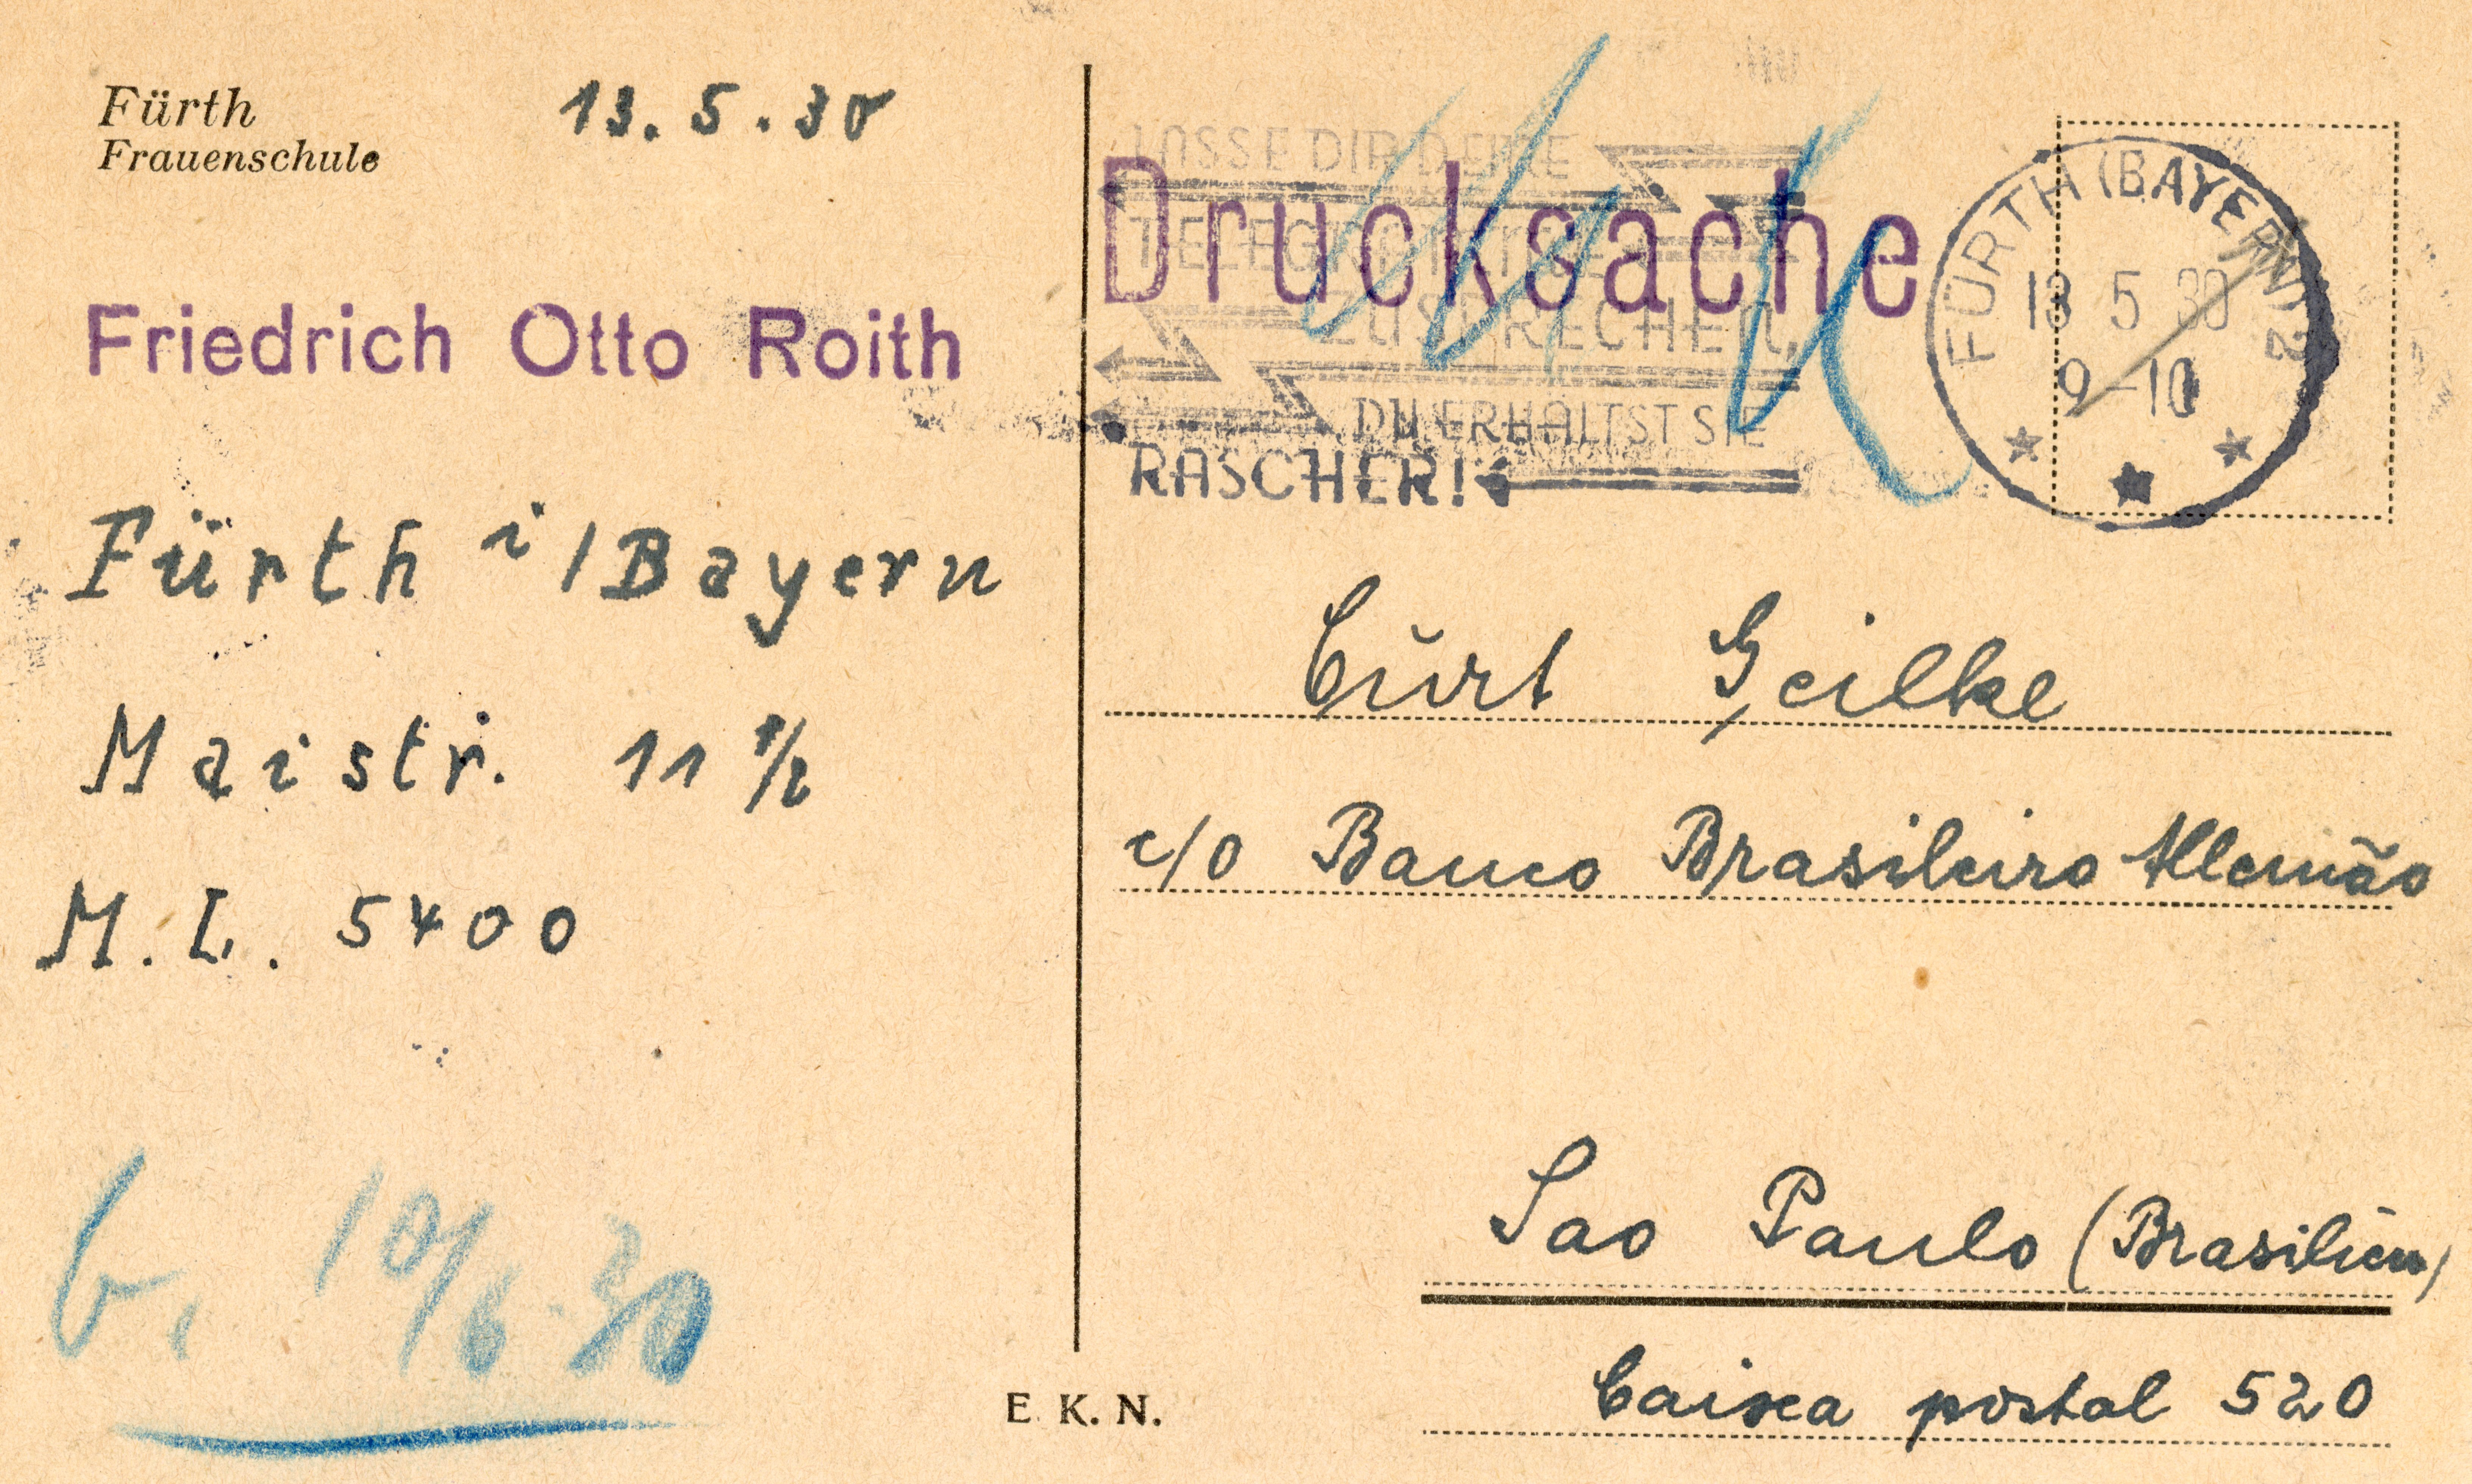 Fürth
Frauenschule
13.5.30
Friedrich Otto Roith
Fürth i/Bayern
Maistr. 11 1/2
M.L. 5400
10/6.30
E. K. N.
Drucksache
LASSE DIR DEINE
TELEGRAMME
ZUSPRECHEN,
DU ERHÄLTST SIE
RASCHER!
FÜRTH (BAYERN) 2
13 5 30
9-10
Cŭrt Geilke
c/o Banco Brasileiro Allemão
Sao Paulo (Brasilien)
Caixa postal 520